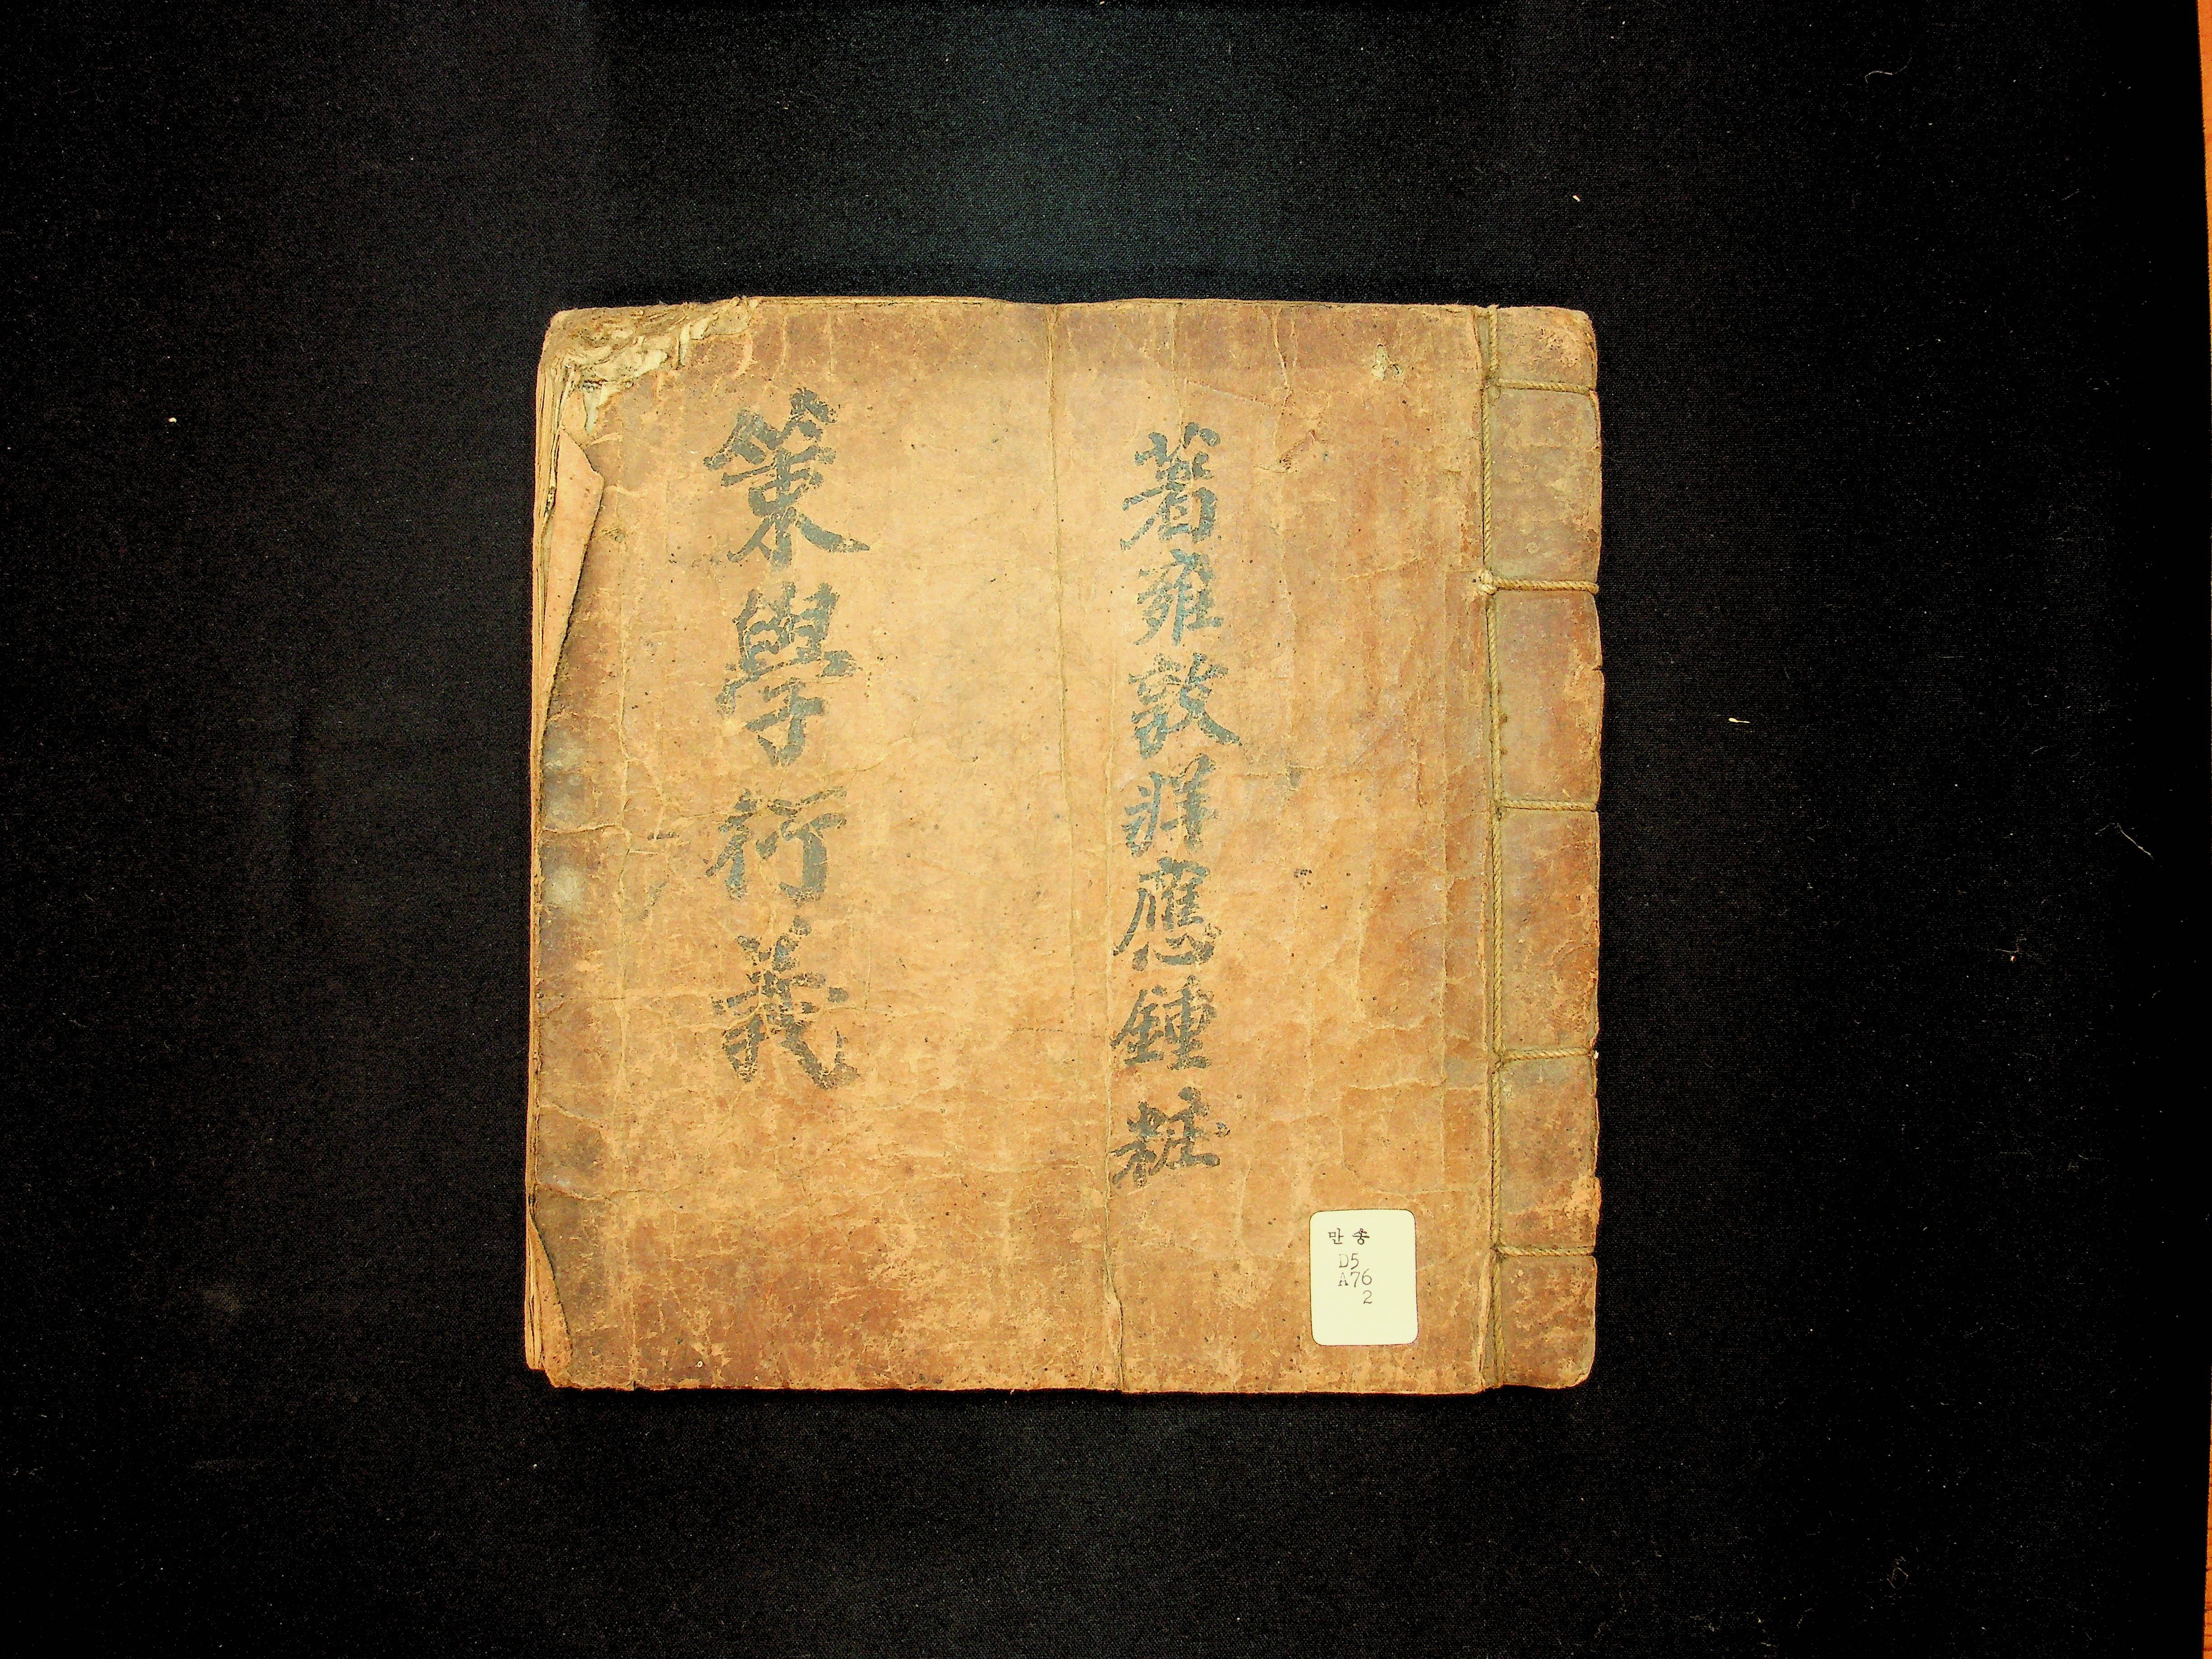 著雍敦牂應鍾粧
策學衍義
만송
D5
A76
2